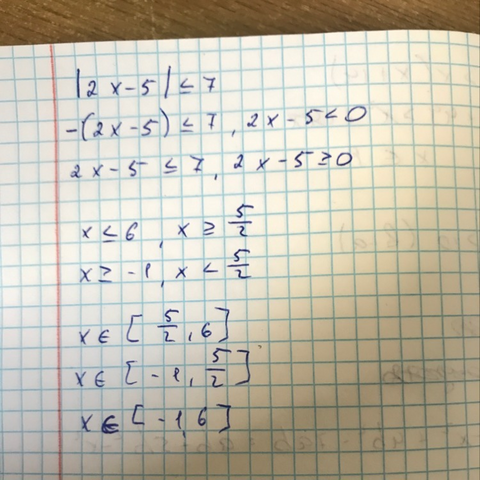 |2x-5|≤7
-(2x-5)≤7, 2x-5<0
2x-5≤7, 2x-5≥0
x≤6, x≥5/2
x≥-1, x<5/2
x∈[5/2,6]
x∈[-1,5/2]
x∈[-1,6]